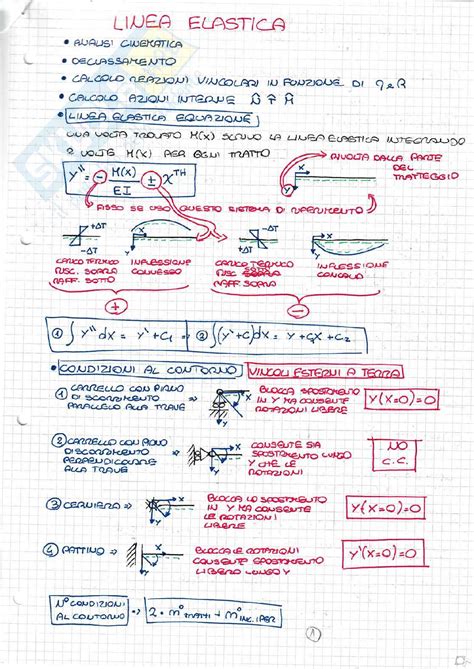 LINEA ELASTICA
• ANALISI CINEMATICA
• DECLASSAMENTO
• CALCOLO REAZIONI VINCOLARI IN FUNZIONE DI q e R
• CALCOLO AZIONI INTERNE N̂ T̂ M̂
• LINEA ELASTICA EQUAZIONE
UNA VOLTA TROVATO M(x) SCRIVO LA LINEA ELASTICA INTEGRANDO
2 VOLTE M(x) PER OGNI TRATTO
y'' = - M(x)/EI ± χ^TH
x
y
RIVOLTA DALLA PARTE
DEL
TRATTEGGIO
ASSO SE USO QUESTO SISTEMA DI RIFERIMENTO
-ΔT
+ΔT
x
y
+ΔT
-ΔT
x
y
CARICO TERMICO
RISC. SOPRA
RAFF. SOTTO
INFLESSIONE
CONVESSO
CARICO TERMICO
RISC. SOTTO
RAFF. SOPRA
INFLESSIONE
CONCAVO
+
-
① ∫ y'' dx = y' + C₁ ⇒ ② ∫(y' + C₁)dx = y + C₁x + C₂
• CONDIZIONI AL CONTORNO VINCOLI ESTERNI A TERRA
① CARRELLO CON PIANO
DI SCORRIMENTO
PARALLELO ALLA TRAVE
x
y
BLOCCA SPOSTAMENTO
IN Y MA CONSENTE
ROTAZIONI LIBERE
y(x=0)=0
② CARRELLO CON PIANO
DI SCORRIMENTO
PERPENDICOLARE
ALLA TRAVE
x
y
CONSENTE SIA
SPOSTAMENTO LUNGO
Y CHE LE
ROTAZIONI
NO
C.C.
③ CERNIERA ⇒
x
y
BLOCCA LO SPOSTAMENTO
IN Y MA CONSENTE
LE ROTAZIONI
LIBERE
y(x=0)=0
④ PATTINO ⇒
x
y
BLOCCA LE ROTAZIONI
CONSENTE SPOSTAMENTO
LIBERO LUNGO Y
y'(x=0)=0
N° CONDIZIONI
AL CONTORNO ⇒ 2 · n° TRATTI + n° INC. IPER
1